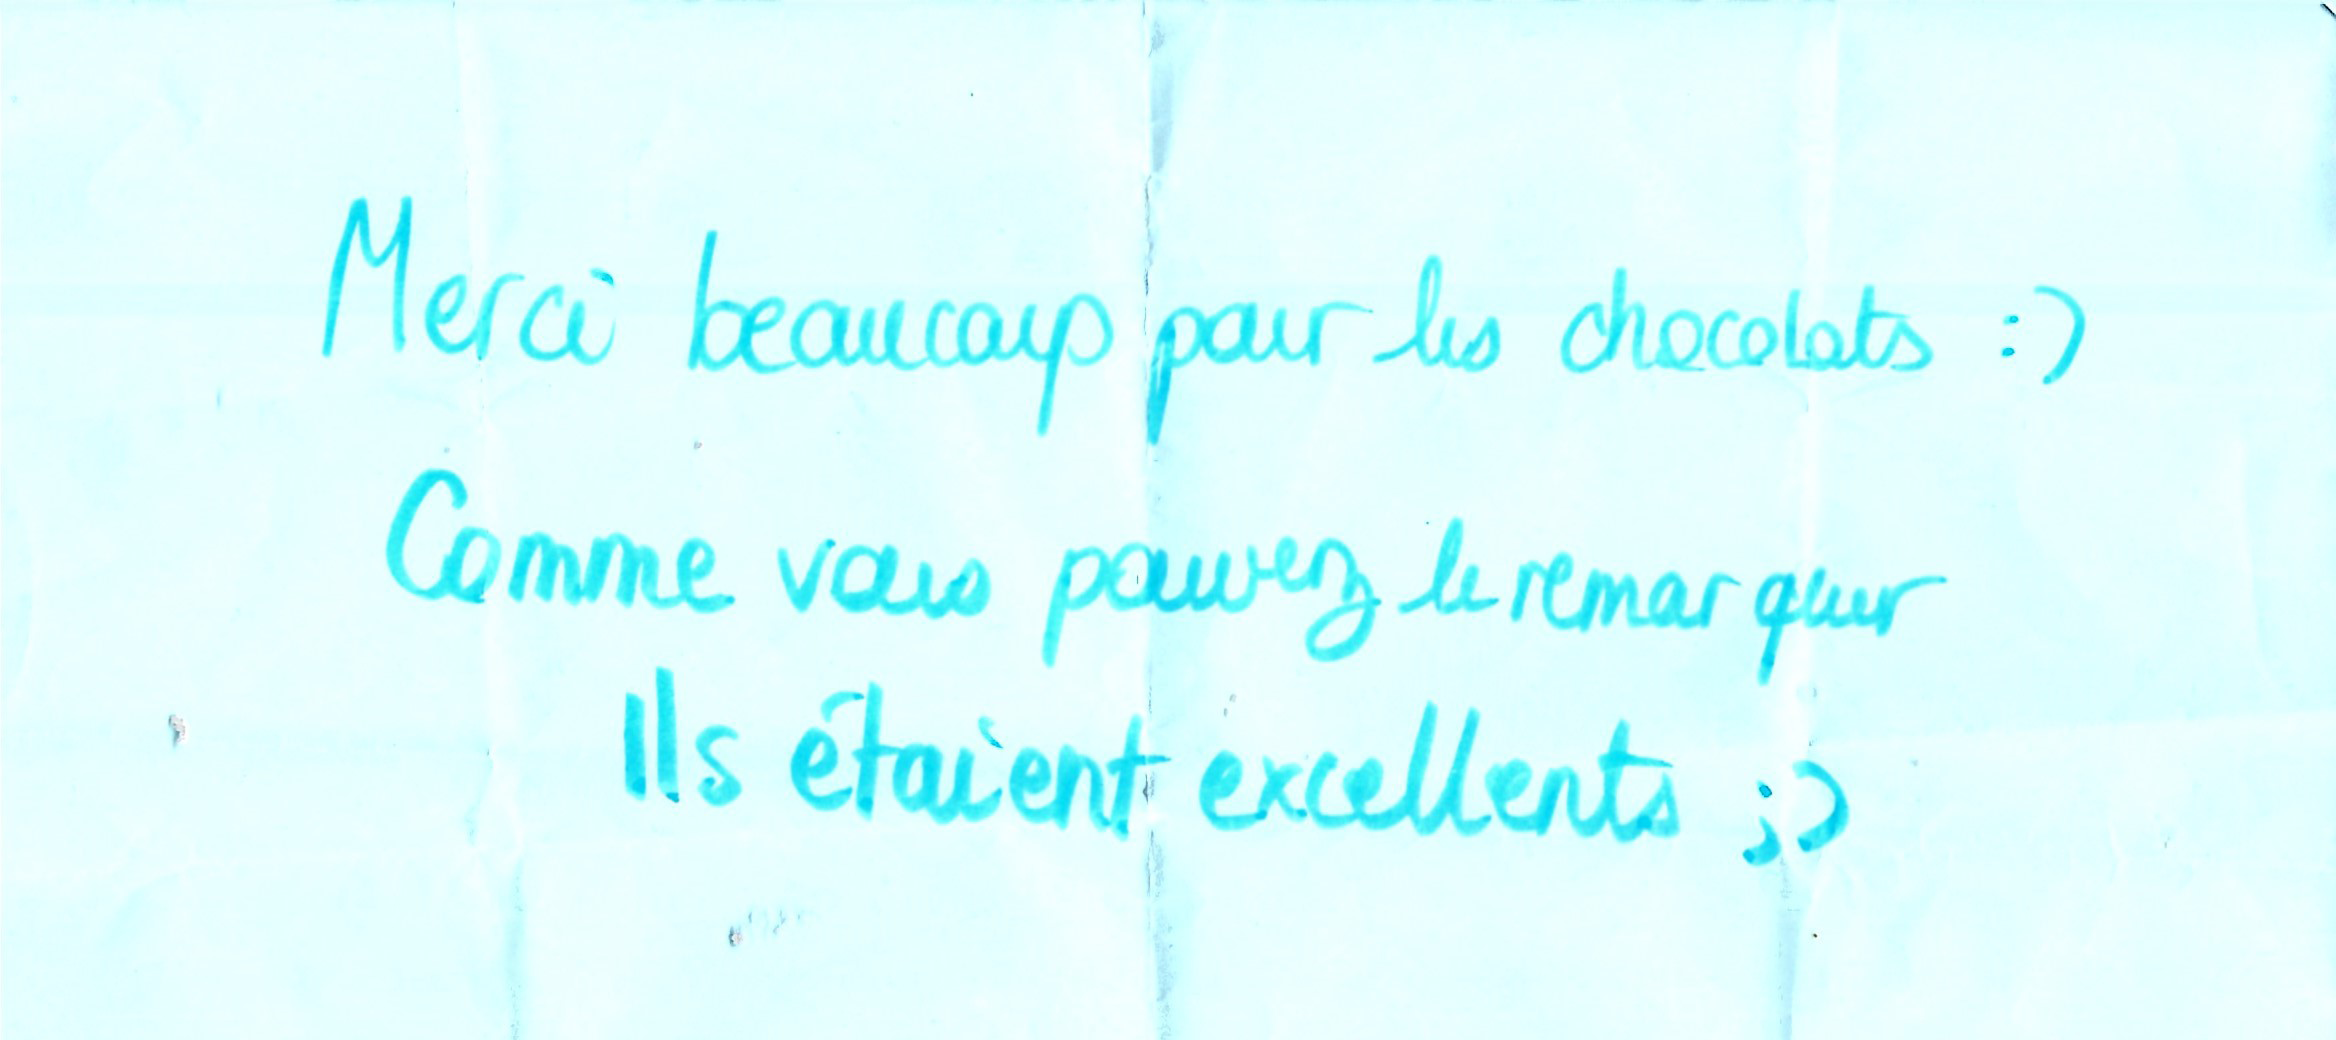 Merci beaucoup pour les chocolats :)
Comme vous pouvez le remarquer
Ils étaient excellents ;)